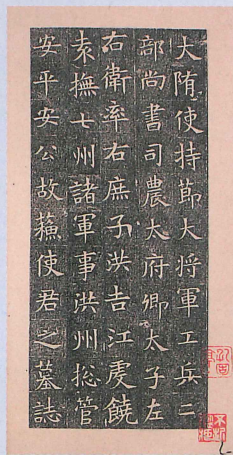 大隋使持節大將軍工兵二
部尚書司農太府卿太子左
右衛率右庶子洪吉江虔饒
袁撫七州諸軍事洪州総管
安平安公故蘓使君之墓誌